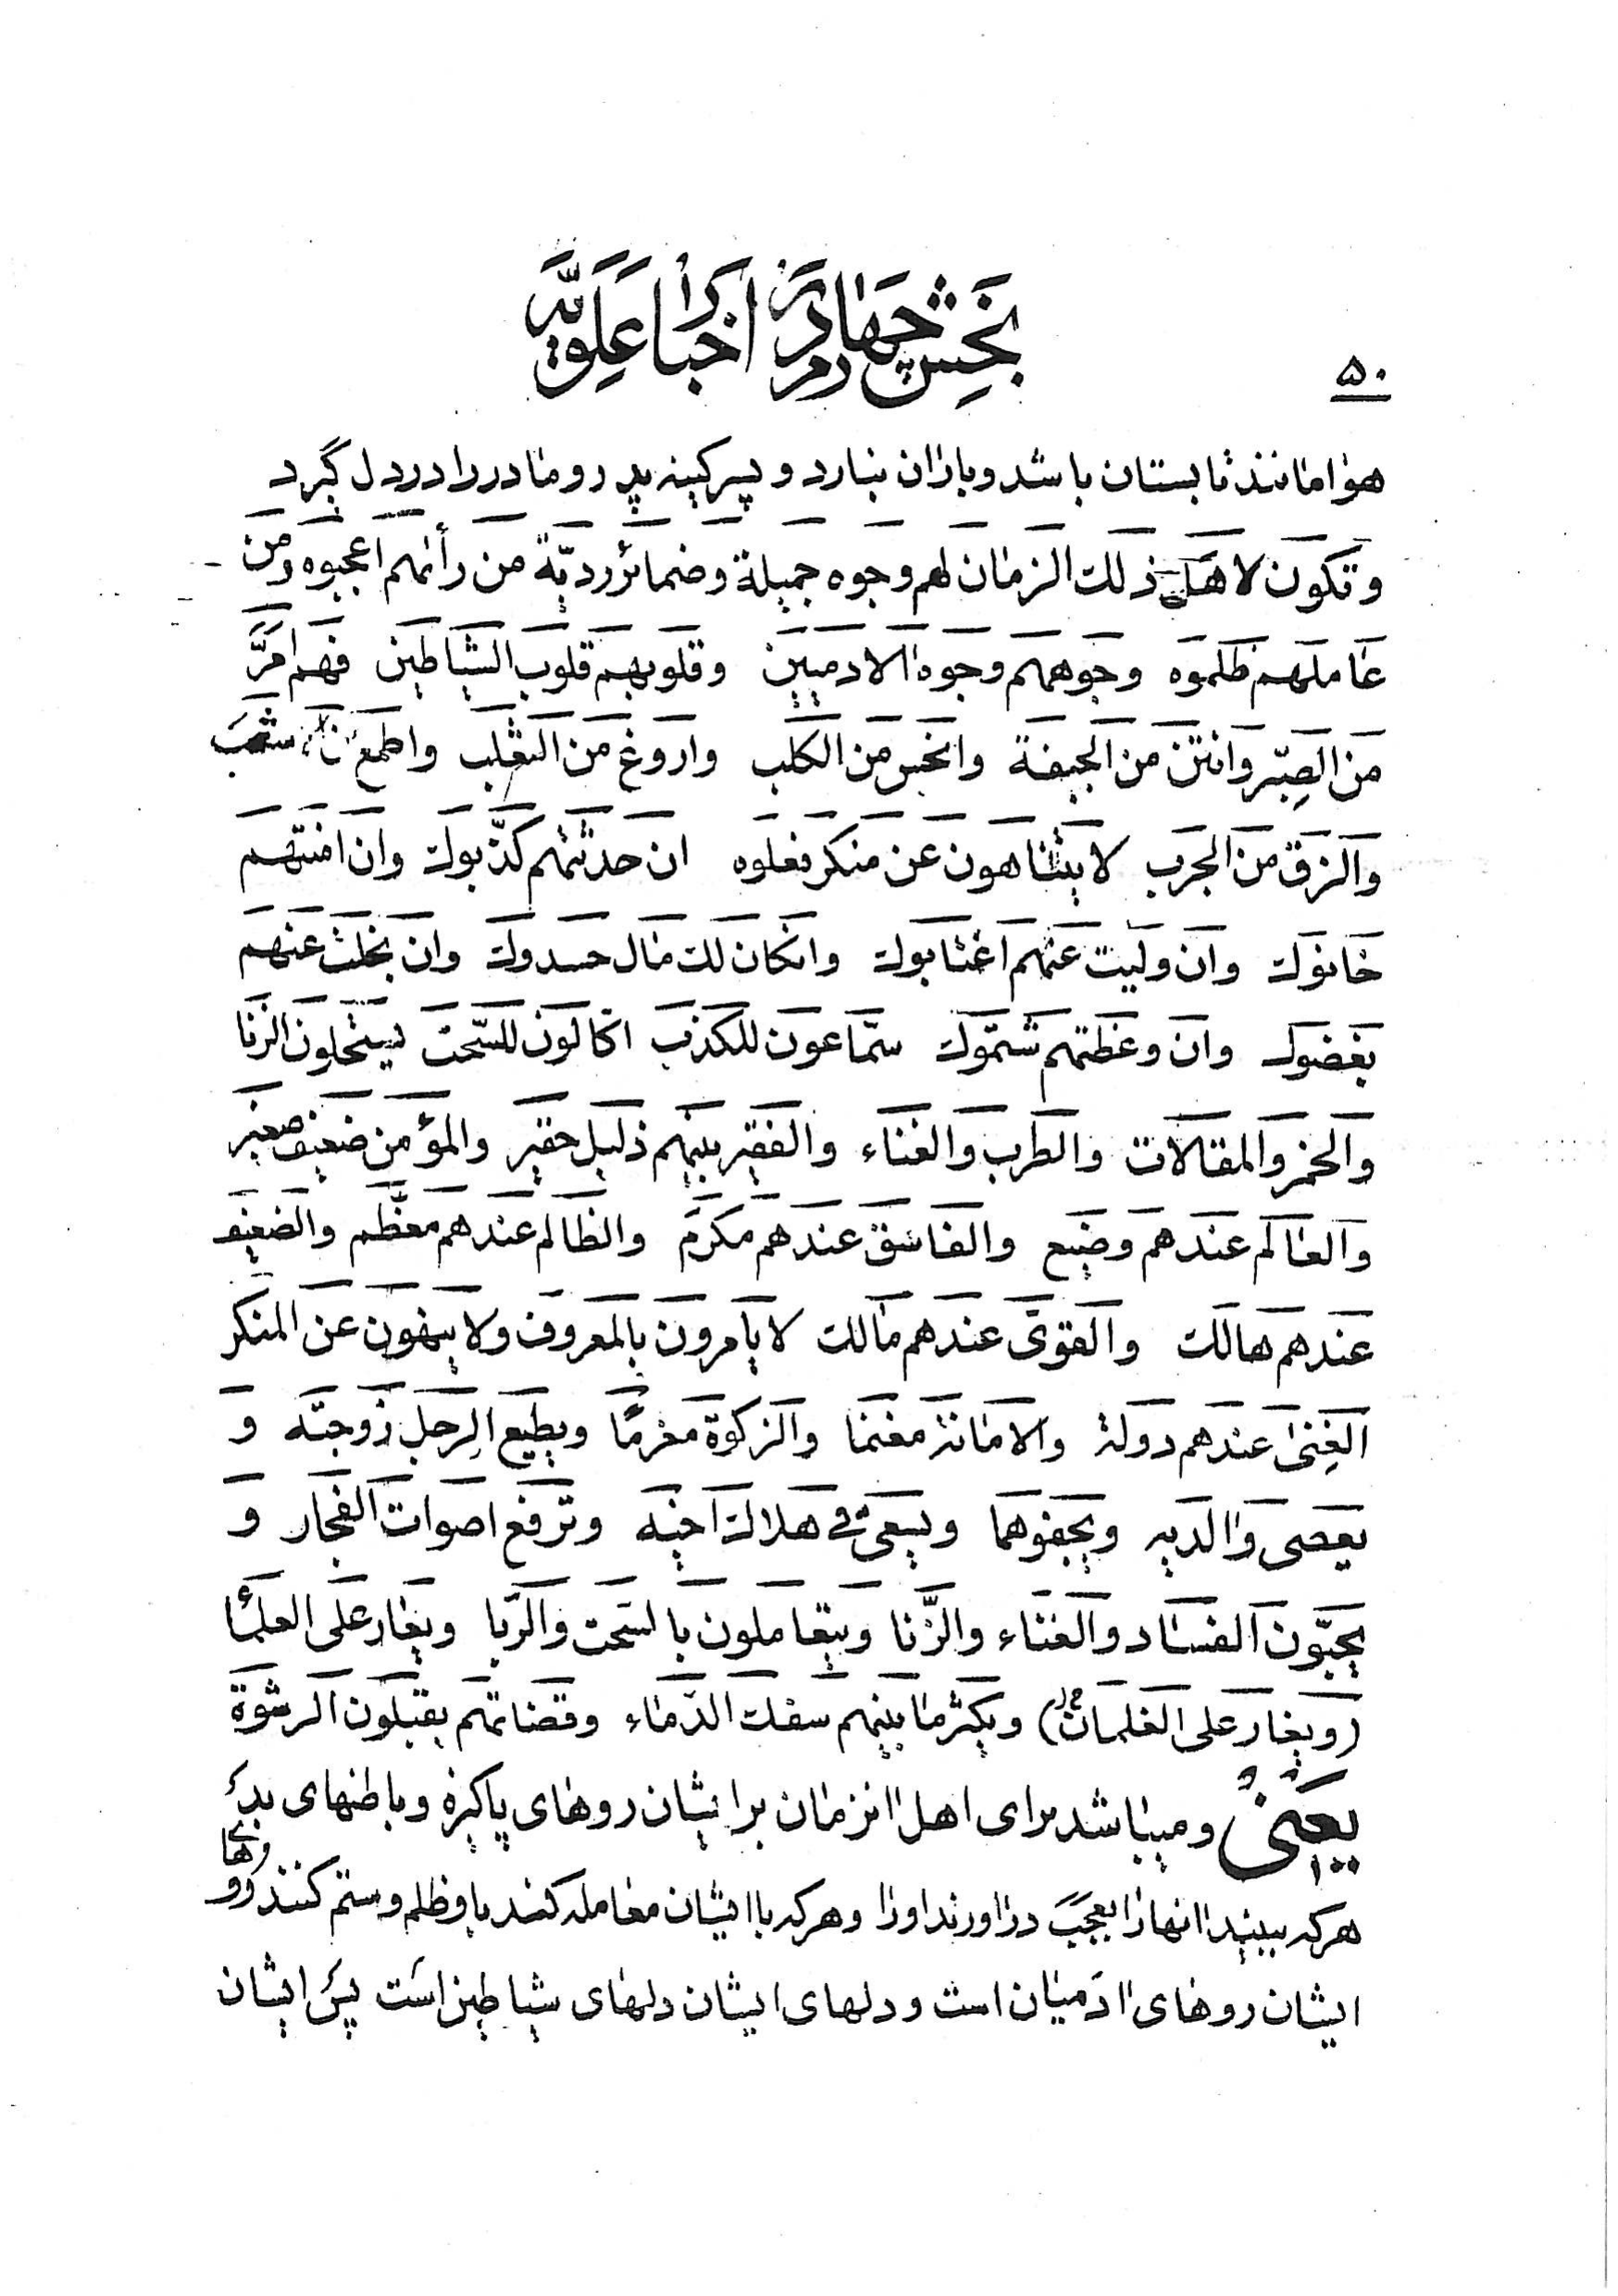 بخش چهارم در اخبار علویّه
۵۰
هوا مانند تابستان باشد و باران نبارد و پسر کینه پدر و مادر را در دل گیرد
و تکون لاهل ذلک الزمان لهم وجوه جمیلة و ضمائر ردیّة من رأیهم اعجبوه و من
عاملهم ظلموه وجوههم وجوه الادمیین وقلوبهم قلوب الشیاطین فهم امرّ
من الصبر وانتن من الجیفة وانجس من الکلب واروغ من الثعلب واطمع من اشعب
والزق من الجرب لا یتناهون عن منکر فعلوه ان حدثتهم کذّبوک وان امنتهم
خانوک وان ولیت عنهم اغتابوک وانکان لک مال حسدوک وان بخلت عنهم
بغضوک وان وعظتهم شتموک سمّاعون للکذب اکالون للسّحت یستحلون الزنا
والخمر والمقالات والطرب والغناء والفقیر بینهم ذلیل حقیر والمؤمن ضعیف صغیر
والعالم عندهم وضیع والفاسق عندهم مکرم والظالم عندهم معظّم والضعیف
عندهم هالک والقوی عندهم مالک لا یامرون بالمعروف ولا ینهون عن المنکر
الغِنی عندهم دولة والامانة مغنما والزکوة مغرمًا ویطیع الرجل زوجته و
یعصی والدیه ویجفوهما ویسعی فی هلاک اخیه وترفع اصوات الفجار و
یحبّون الفساد والغناء والزّنا ویتعاملون بالسحت والرّبا ویغار علی العلمأ
(ویغار علی الغلمان خ ل) ویکثر ما بینهم سفک الدّماء وقضاتهم یقبلون الرشوة
یعنی و میباشد برای اهل انزمان برایشان روهای پاکیزه و باطنهای بدی
هرکه ببیند انها را بعجب دراورند او را و هرکه با ایشان معامله کند باو ظلم و ستم کنند و روهای
ایشان روهای ادمیان است و دلهای ایشان دلهای شیاطین است پس ایشان